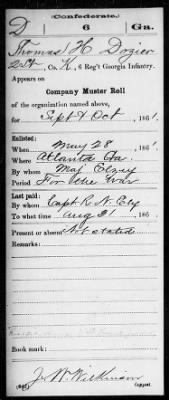 (Confederate.)
D 6 Ga.
Thomas H Dozier
2 Lt, Co. K, 6 Reg't Georgia Infantry.
Appears on
Company Muster Roll
of the organization named above,
for Sept & Oct, 1861.
Enlisted:
When May 28, 1861.
Where Atlanta Ga.
By whom Maj
Period For the War
Last paid:
By whom Capt. R. N. Ely
To what time Aug 31, 186
Present or absent Not stated
Remarks:
Book mark:
J. W. Wilkinson
Copyist.